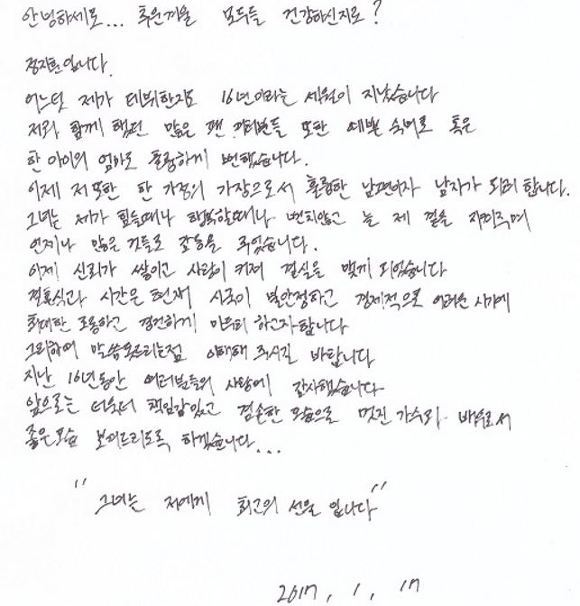 안녕하세요... 추운겨울 모두들 건강하신지요?
정지훈입니다.
어느덧 제가 데뷔한지도 16년이라는 세월이 지났습니다
저와 함께 했던 많은 팬 여러분들 또한 예쁜 숙녀로 혹은
한 아이의 엄마로 훌륭하게 변했습니다.
이제 저 또한 한 가정의 가장으로서 훌륭한 남편이자 남자가 되려 합니다.
그녀는 제가 힘들때나 행복할때나 변치않고 늘 제 곁을 지켜주며
언제나 많은 것들로 감동을 주었습니다.
이제 신뢰가 쌓이고 사랑이 커져 결실을 맺게 되었습니다
결혼식과 시간은 현재 시국이 불안정하고 경제적으로 어려운 시기에
최대한 조용하고 경건하게 마무리 하고자합니다
그리하여 말씀못드리는점 양해해 주시길 바랍니다
지난 16년동안 여러분들의 사랑에 감사했습니다
앞으로는 더욱더 책임감있고 겸손한 모습으로 멋진 가수와 배우로서
좋은모습 보여드리도록 하겠습니다...
"그녀는 저에게 최고의 선물 입니다"
2017. 1. 17